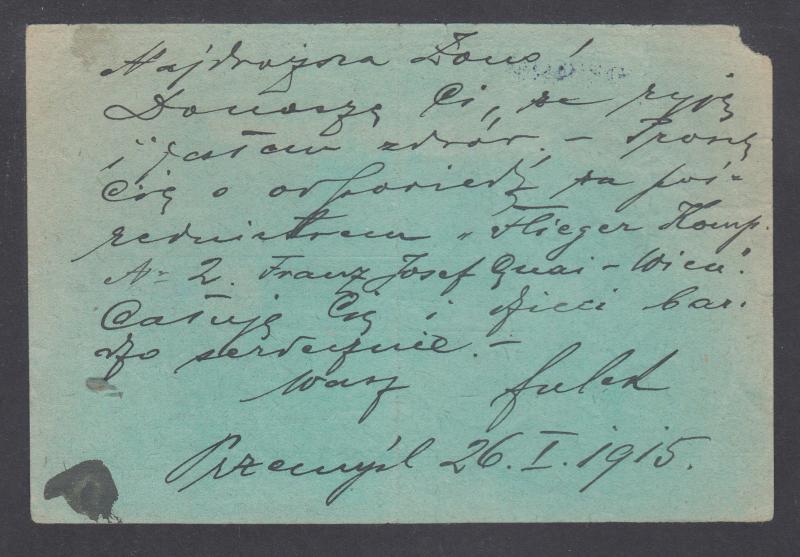 Najdroższa Żono!
Donoszę Ci, że żyję
i jestem zdrów. – Proszę
Cię o odpowiedź za poś-
rednictwem „Flieger Komp.
No 2. Franz Josef Quai – Wien".
Całuję Cię i dzieci bar-
dzo serdecznie. –
Wasz Julek
Przemyśl 26. I. 1915.